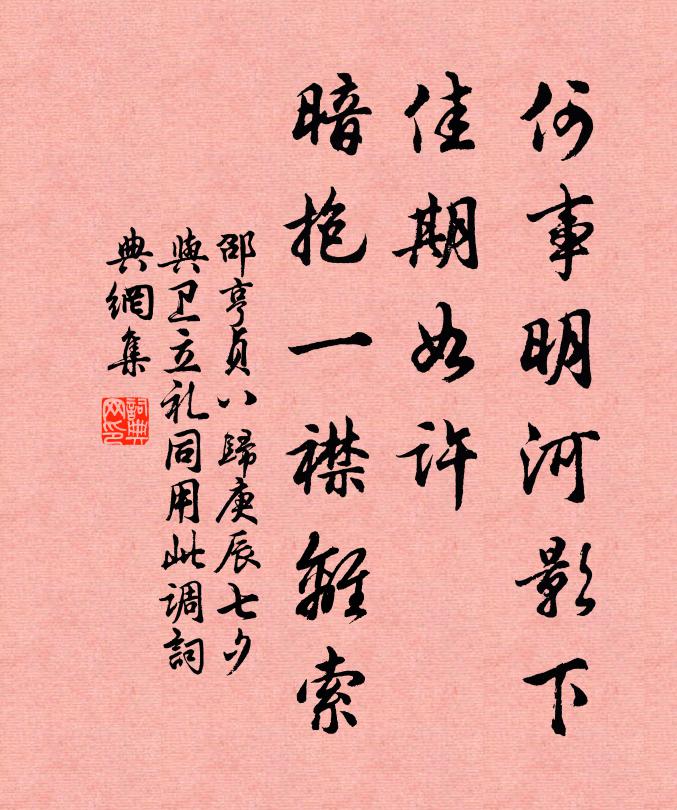 何事明河影下
佳期如许
暗抱一襟離索
邵亨贞八歸庚辰七夕
與卫立礼同用此调詞
典網集
詞典网印